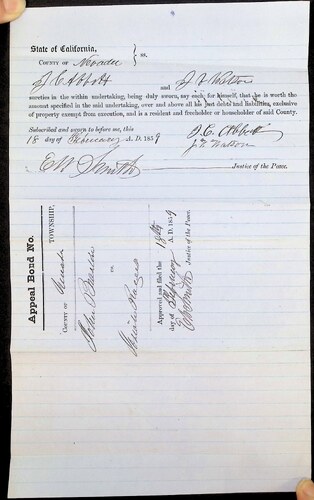 State of California,
COUNTY OF Nevada } ss.
J. C. Abbott and J. F. Watson
sureties in the within undertaking, being duly sworn, say each for himself, that he is worth the
amount specified in the said undertaking, over and above all his just debts and liabilities, exclusive
of property exempt from execution, and is a resident and freeholder or householder of said County.
Subscribed and sworn to before me, this
18 day of February A. D. 1859
J. C. Abbott
J. F. Watson
E W Smith Justice of the Peace.
Appeal Bond No.
TOWNSHIP,
COUNTY OF Nevada
John
vs.
Approved and filed the 18th
day of February A. D. 1859
E W Smith
Justice of the Peace.